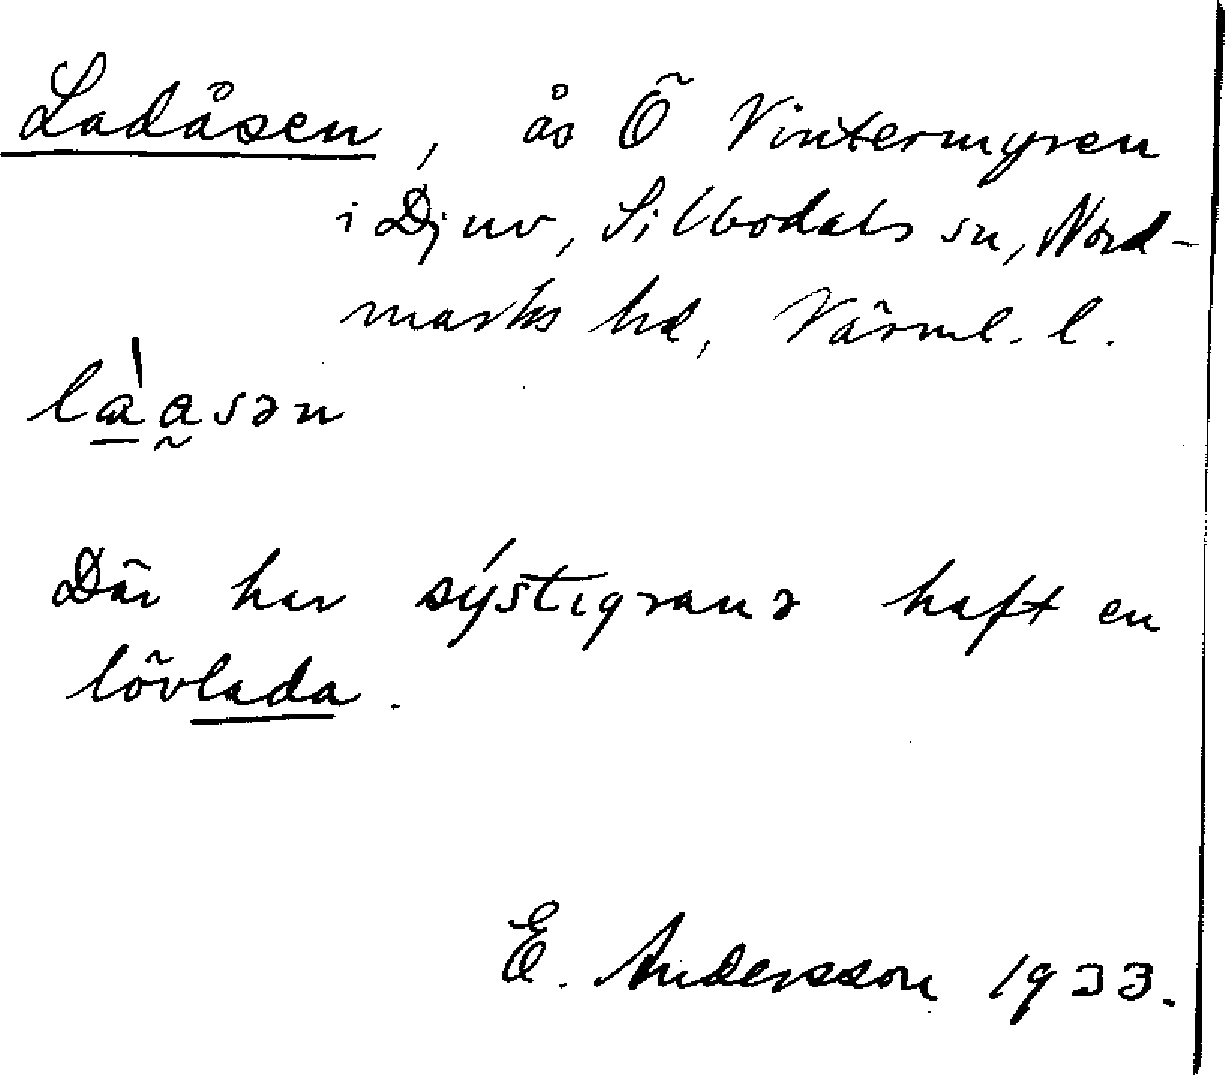 Ladåsen, ås Ö Vintermyren
i Djuv, Silbodals sn, Nord-
marks hd, Värml. l.
là̱a̰sən
Där har sýstıgɹanə haft en
lövlada.
E. Andersson 1933.